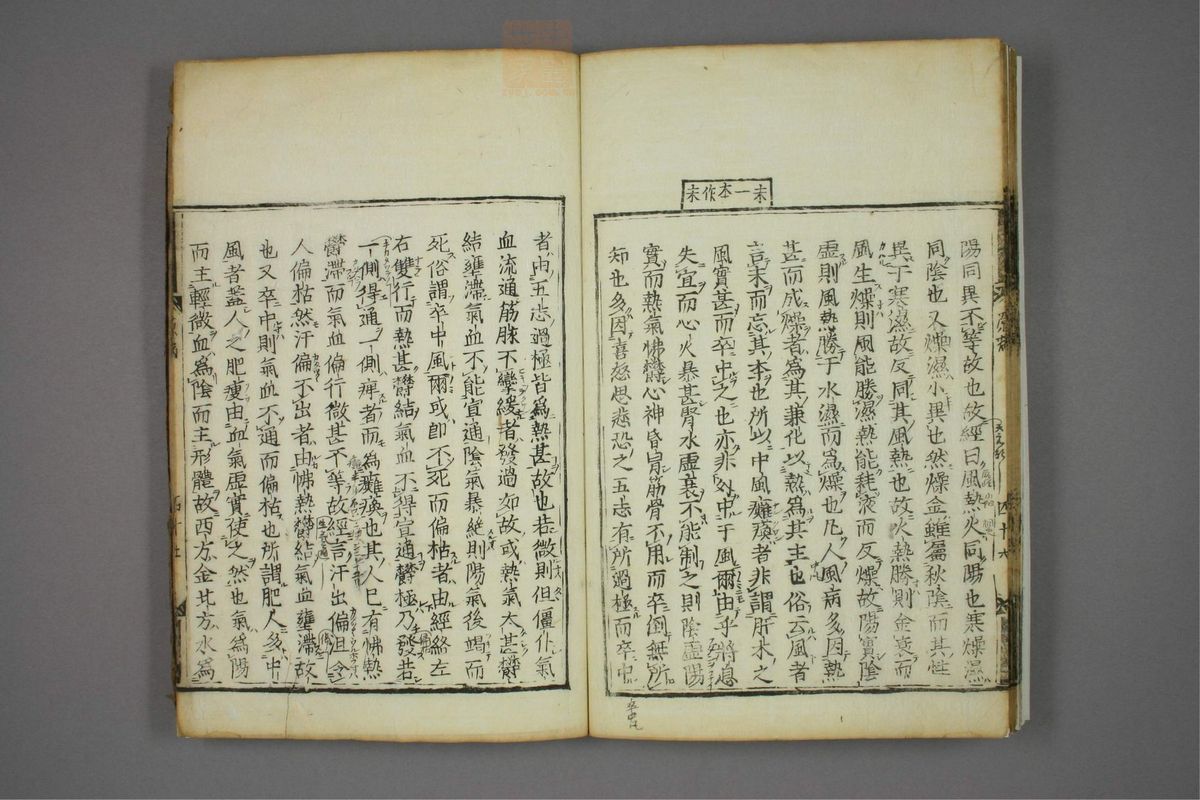 末一本作末
陽同異不等故也故經曰風熱火同陽也寒燥濕
同陰也又燥濕小異也然燥金雖屬秋陰而其性
異于寒濕故反同其風熱也故火熱勝則金衰而
風生燥則風能勝濕熱能耗液而反燥故陽實陰
虛則風熱勝于水濕而爲燥也凡人風病多因熱
甚而成燥者爲其兼化以熱爲其主也俗云風者
言末而忘其本也所以中風癱瘓者非謂肝木之
風實甚而卒中之也亦非外中于風爾由乎將息
失宜而心火暴甚腎水虛衰不能制之則陰虛陽
實而熱氣怫鬱心神昏冒筋骨不用而卒倒無所
知也多因喜怒思悲恐之五志有所過極而卒中
者由五志過極皆爲熱甚故也若微則但僵仆氣
血流通筋脉不攣緩者發過如故或熱氣太甚鬱
結壅滯氣血不能宣通陰氣暴絶則陽氣後竭而
死俗謂卒中風爾或即不死而偏枯者由經絡左
右雙行而熱甚鬱結氣血不得宣通鬱極乃發若
一側得通一側痹者而為癱瘓也其人已有怫熱
鬱滯而氣血偏行微甚不等故經言汗出偏沮令
人偏枯然汗偏不出者由怫熱鬱結氣血壅滯故
也又卒中則氣血不通而偏枯也所謂肥人多中
風者蓋人之肥瘦由血氣虛實使之然也氣爲陽
而主輕微血爲陰而主形體故西方金北方水爲